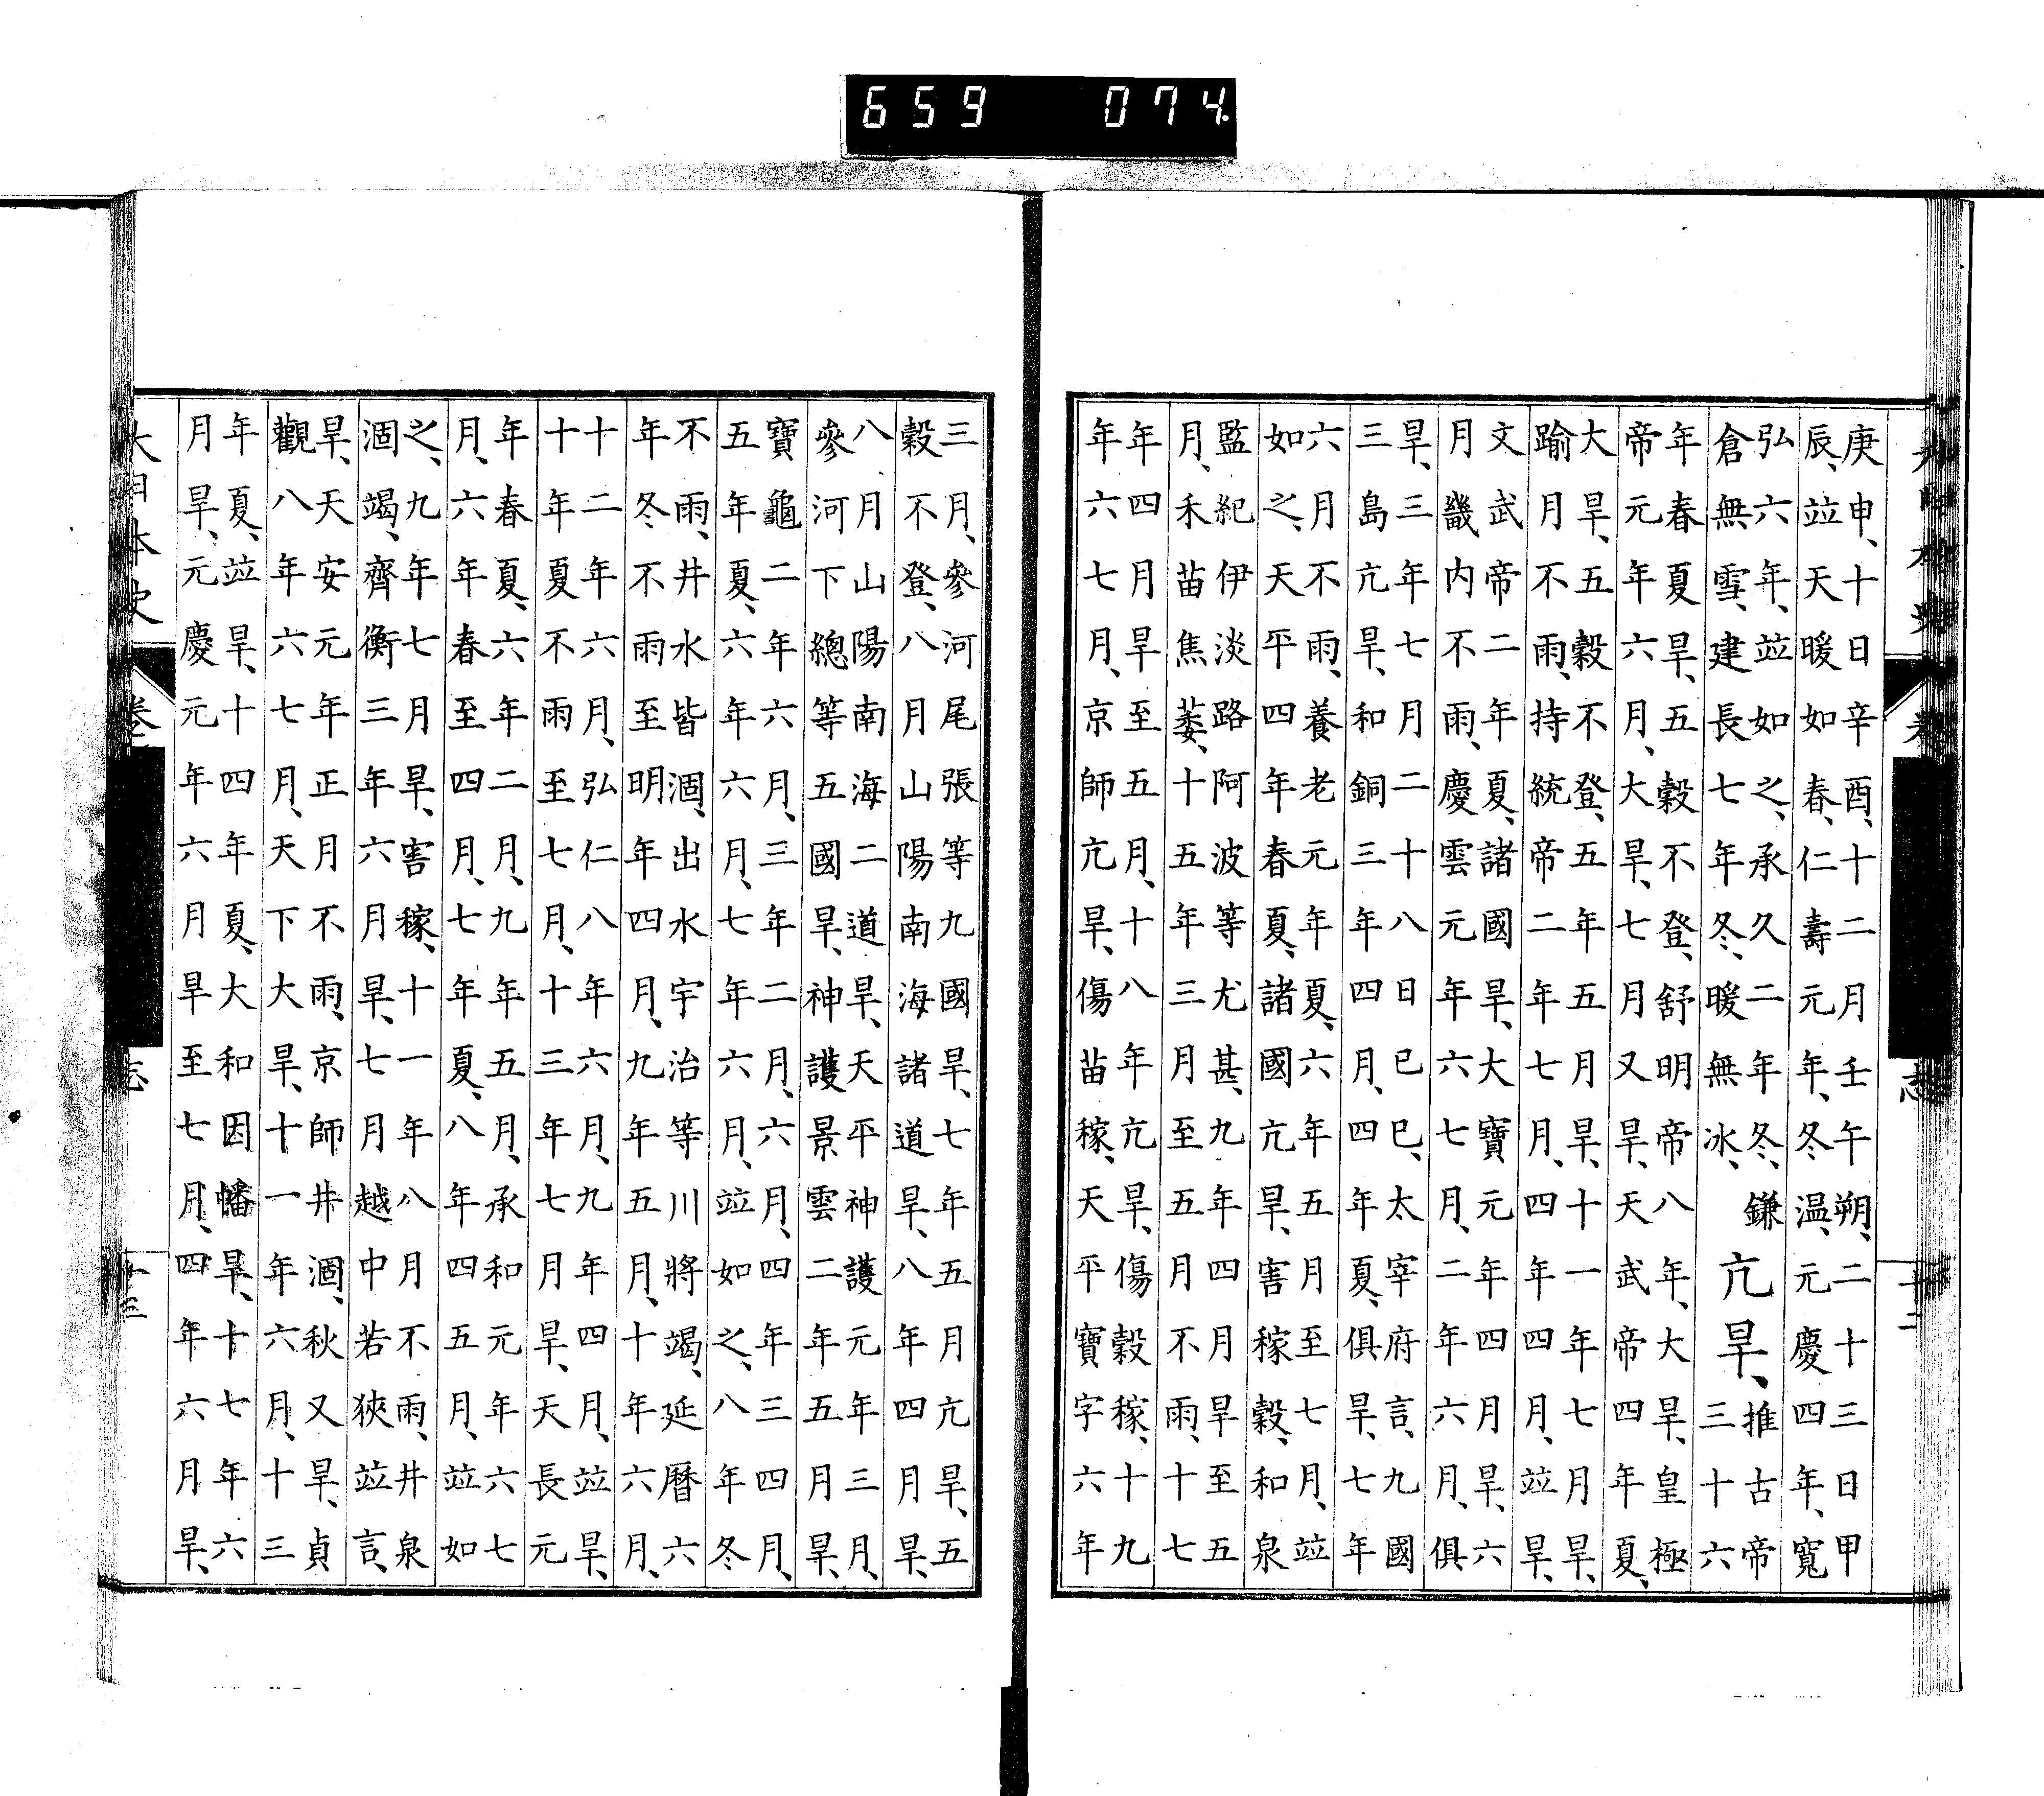 庚申、十日辛酉、十二月壬午朔、二十三日甲
辰、竝天暖如春、仁壽元年、冬温、元慶四年、寬
弘六年、竝如之、承久二年冬、鎌
倉無雪、建長七年冬、暖無冰、
亢旱、
推古帝
三十六
年春夏旱、五穀不登、舒明帝八年、大旱、皇極
帝元年六月、大旱、七月又旱、天武帝四年夏、
大旱、五穀不登、五年五月旱、十一年七月旱、
踰月不雨、持統帝二年七月、四年四月、竝旱、
文武帝二年夏、諸國旱、大寶元年四月旱、六
月畿內不雨、慶雲元年六七月、二年六月、俱
旱、三年七月二十八日己巳、太宰府言、九國
三島亢旱、和銅三年四月、四年夏、俱旱、七年
六月不雨、養老元年夏、六年五月至七月、竝
如之、天平四年春夏、諸國亢旱、害稼穀、和泉
監紀伊淡路阿波等尤甚、九年四月旱至五
月、禾苗焦萎、十五年三月至五月不雨、十七
年四月旱至五月、十八年亢旱、傷穀稼、十九
年六七月、京師亢旱、傷苗稼、天平寶字六年
三月、參河尾張等九國旱、七年五月亢旱、五
穀不登、八月山陽南海諸道旱、八年四月旱、
八月山陽南海二道旱、天平神護元年三月、
參河下總等五國旱、神護景雲二年五月旱、
寶龜二年六月、三年二月、六月、四年三四月、
五年夏、六年六月、七年六月、竝如之、八年冬
不雨、井水皆涸、出水宇治等川將竭、延曆六
年冬不雨至明年四月、九年五月、十年六月、
十二年六月、弘仁八年六月、九年四月、竝旱、
十年夏不雨至七月、十三年七月旱、天長元
年春夏、六年二月、九年五月、承和元年六七
月、六年春至四月、七年夏、八年四五月、竝如
之、九年七月旱、害稼、十一年八月不雨、井泉
涸竭、齊衡三年六月旱、七月越中若狹竝言、
旱、天安元年正月不雨、京師井涸、秋又旱、貞
觀八年六七月、天下大旱、十一年六月、十三
年夏、竝旱、十四年夏、大和因幡旱、十七年六
月旱、元慶元年六月旱至七月、四年六月旱、
大日本史 卷 志 十三
659 074